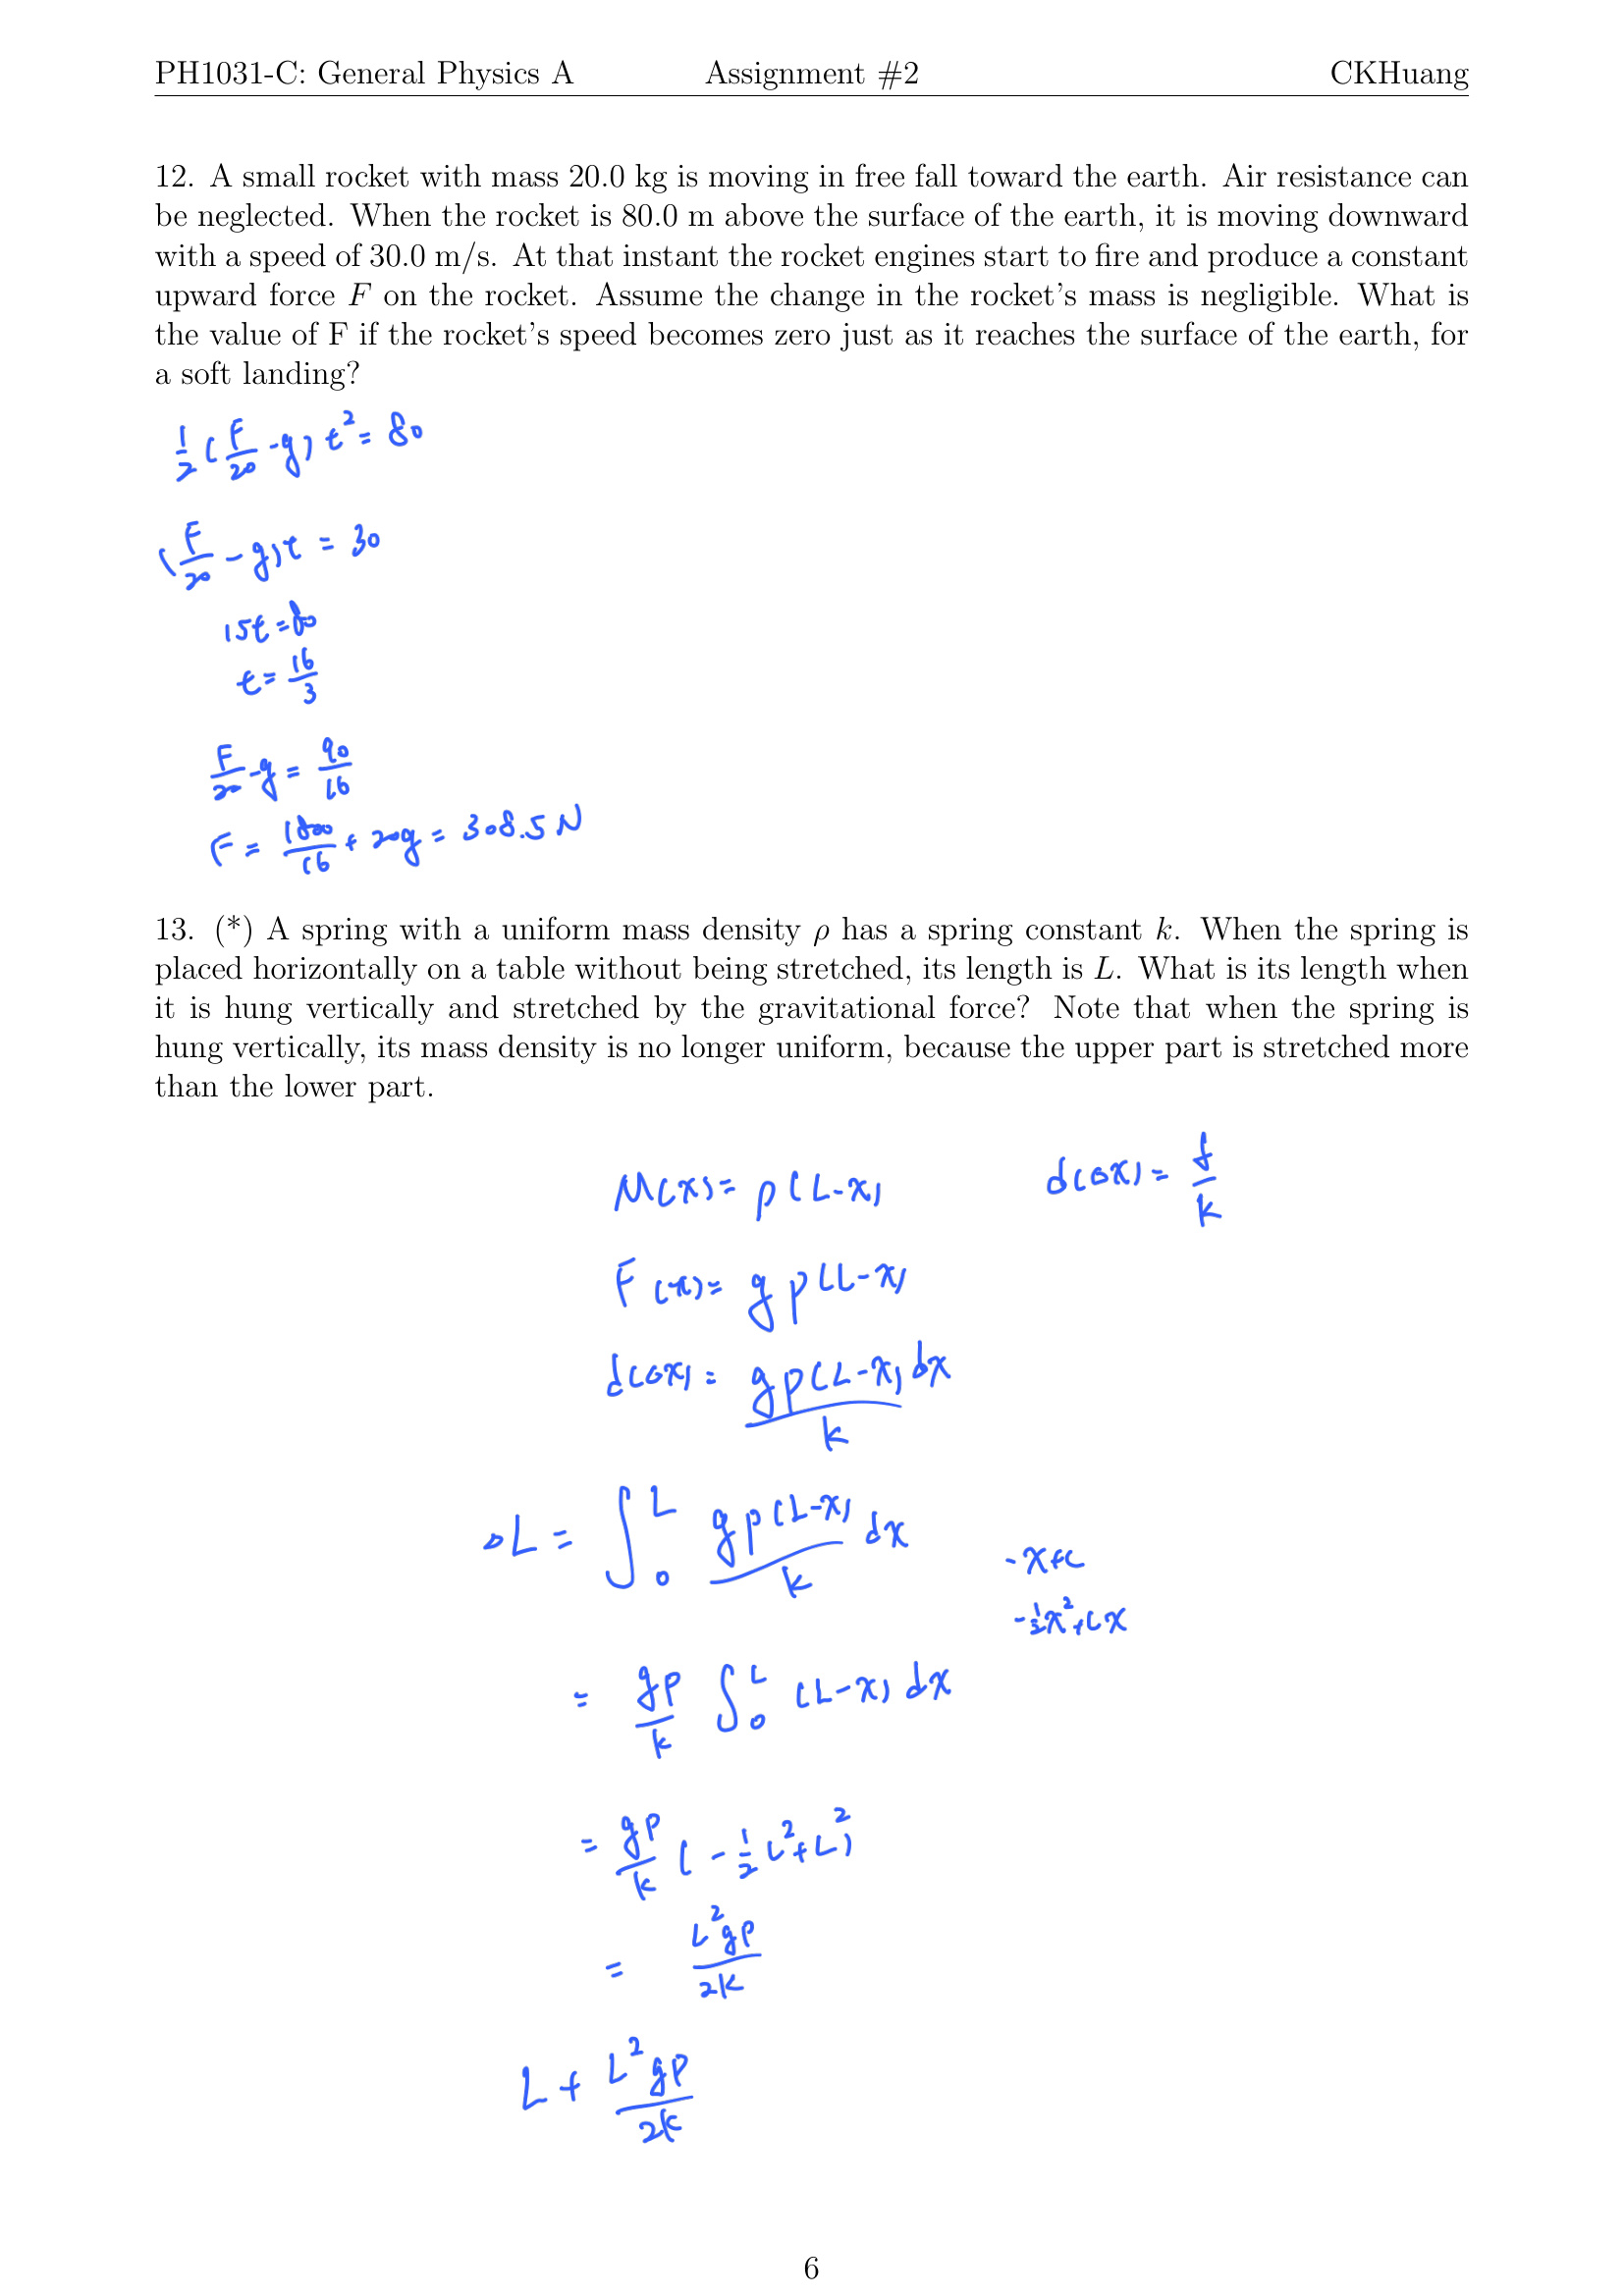 PH1031-C: General Physics A Assignment #2 CKHuang
12. A small rocket with mass 20.0 kg is moving in free fall toward the earth. Air resistance can
be neglected. When the rocket is 80.0 m above the surface of the earth, it is moving downward
with a speed of 30.0 m/s. At that instant the rocket engines start to fire and produce a constant
upward force F on the rocket. Assume the change in the rocket's mass is negligible. What is
the value of F if the rocket's speed becomes zero just as it reaches the surface of the earth, for
a soft landing?
1/2 (F/20 - g) t² = 80
(F/20 - g) t = 30
15t = 80
t = 16/3
F/20 - g = 90/16
F = 1800/16 + 20g = 308.5 N
13. (*) A spring with a uniform mass density ρ has a spring constant k. When the spring is
placed horizontally on a table without being stretched, its length is L. What is its length when
it is hung vertically and stretched by the gravitational force? Note that when the spring is
hung vertically, its mass density is no longer uniform, because the upper part is stretched more
than the lower part.
M(x) = ρ(L-x) d(Δx) = f/k
F(x) = gρ(L-x)
d(Δx) = gρ(L-x)/k dx
ΔL = ∫₀ᴸ gρ(L-x)/k dx
-x+c
-1/2x²+cx
= gρ/k ∫₀ᴸ (L-x) dx
= gρ/k (-1/2 L² + L²)
= L²gρ/2k
L + L²gρ/2k
6